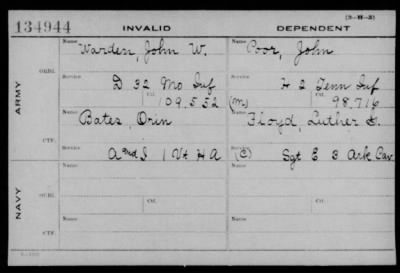 (3-H-3)
134944 INVALID DEPENDENT
Name Warden, John W. Name Poor, John
ORIG.
Service D 32 Mo Inf Service H 2 Tenn Inf
Ctf. 109,552 (M) Ctf. 98,716
ARMY
Name Bates, Orin Name Floyd, Luther
CTF.
Service A and I 1 Vt H A Service (C) Sgt E 3 Ark Cav
Name Ctf. Name Ctf.
ORIG.
Service Service
NAVY
Name Name
CTF.
Service Service